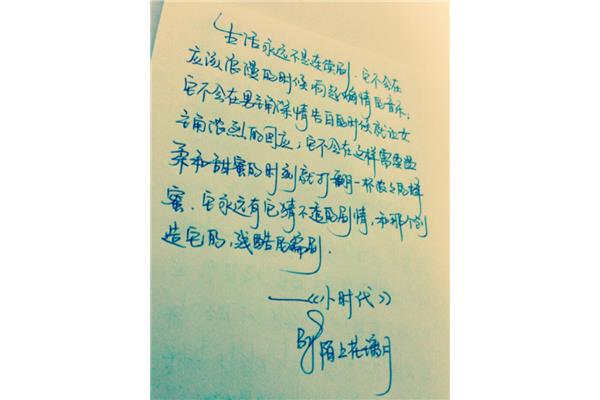 生活永远不是连续剧.它不会在
应该浪漫的时候响起煽情的音乐,
它不会在男主角深情告白的时候就让女
主角浓烈的回应,它不会在这样需要温
柔和甜蜜的时刻就打翻一杯浓浓的蜂
蜜.它永远有它猜不透的剧情,和那个创
造它的,残酷的编剧.
——《小时代》
By 陌上花漓月